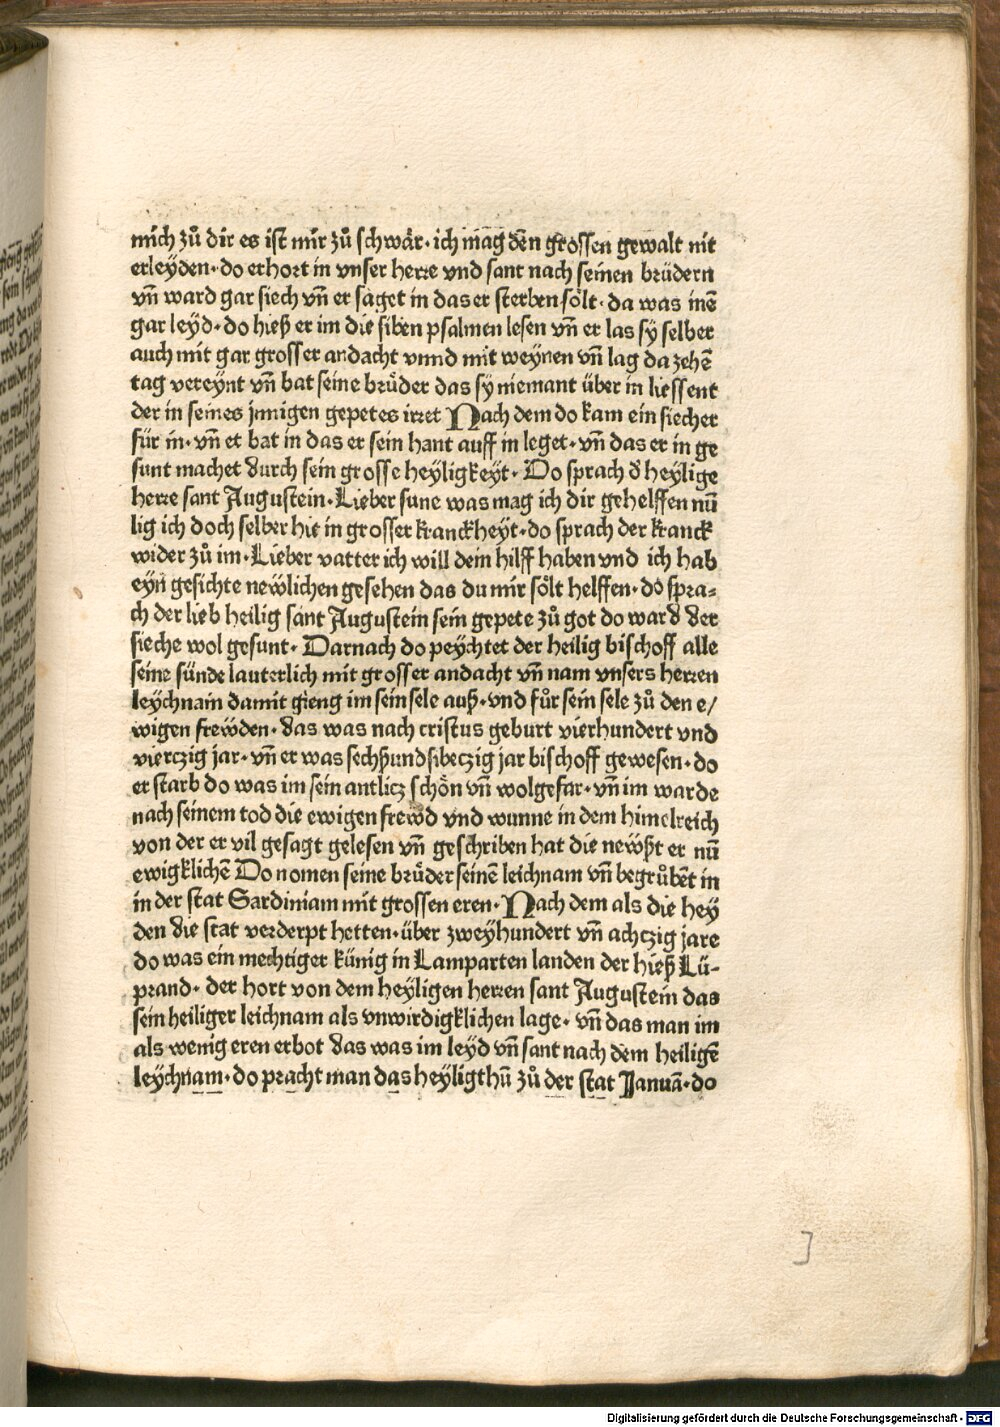 mich zů dir es ist mir zů schwär· ich mag den grossen gewalt nit
erleyden· do erhort in vnser herre vnd sant nach seinen brüdern
vn̄ ward gar siech vn̄ er saget in das er sterben sölt· da was inē
gar leyd· do hieß er im die siben psalmen lesen vn̄ er las sy selber
auch mit gar grosser andacht vnnd mit weynen vn̄ lag da zehē
tag vereynt vn̄ bat seine brüder das sy niemant über in liessent
der in seines jnnigen gepetes irret Nach dem do kam ein siecher
für in· vn̄ et bat in das er sein hant auff in leget· vn̄ das er in ge
sunt machet durch sein grosse heyligkeyt· Do sprach d̕ heylige
herre sant Augustein· Lieber sune was mag ich dir gehelffen nū
lig ich doch selber hie in grosser kranckheyt· do sprach der kranck
wider zů im· Lieber vatter ich will dein hilff haben vnd ich hab
eyn gesichte newlichen gesehen das du mir sölt helffen· do spra-
ch der lieb heilig sant Augustein sein gepete zů got do ward der
sieche wol gesunt· Darnach do peychtet der heilig bischoff alle
seine sünde lauterlich mit grosser andacht vn̄ nam vnsers herren
leychnam damit gieng im sein sele auß· vnd fůr sein sele zů den e/
wigen frewden· das was nach cristus geburt vierhundert vnd
vierczig jar· vn̄ er was sechßundsibeczig jar bischoff gewesen· do
er starb do was im sein antlicz schön vn̄ wolgefar· vn̄ im warde
nach seinem tod die ewigen frewd vnd wunne in dem himelreich
von der er vil gesagt gelesen vn̄ geschriben hat die newßt er nū
ewigklichē Do nomen seine brüder seinē leichnam vn̄ begrůbēt in
in der stat Sardiniam mit grossen eren· Nach dem als die hey
den die stat verderpt hetten· über zweyhundert vn̄ achtzig jare
do was ein mechtiger künig in Lamparten landen der hieß Lü-
prand· der hort von dem heyligen herren sant Augustein das
sein heiliger leichnam als vnwirdigklichen lage· vn̄ das man im
als wenig eren erbot das was im leyd vn̄ sant nach dem heiligē
leychnam· do pracht man das heyligthū zů der stat Januā· do
Digitalisierung gefördert durch die Deutsche Forschungsgemeinschaft - DFG